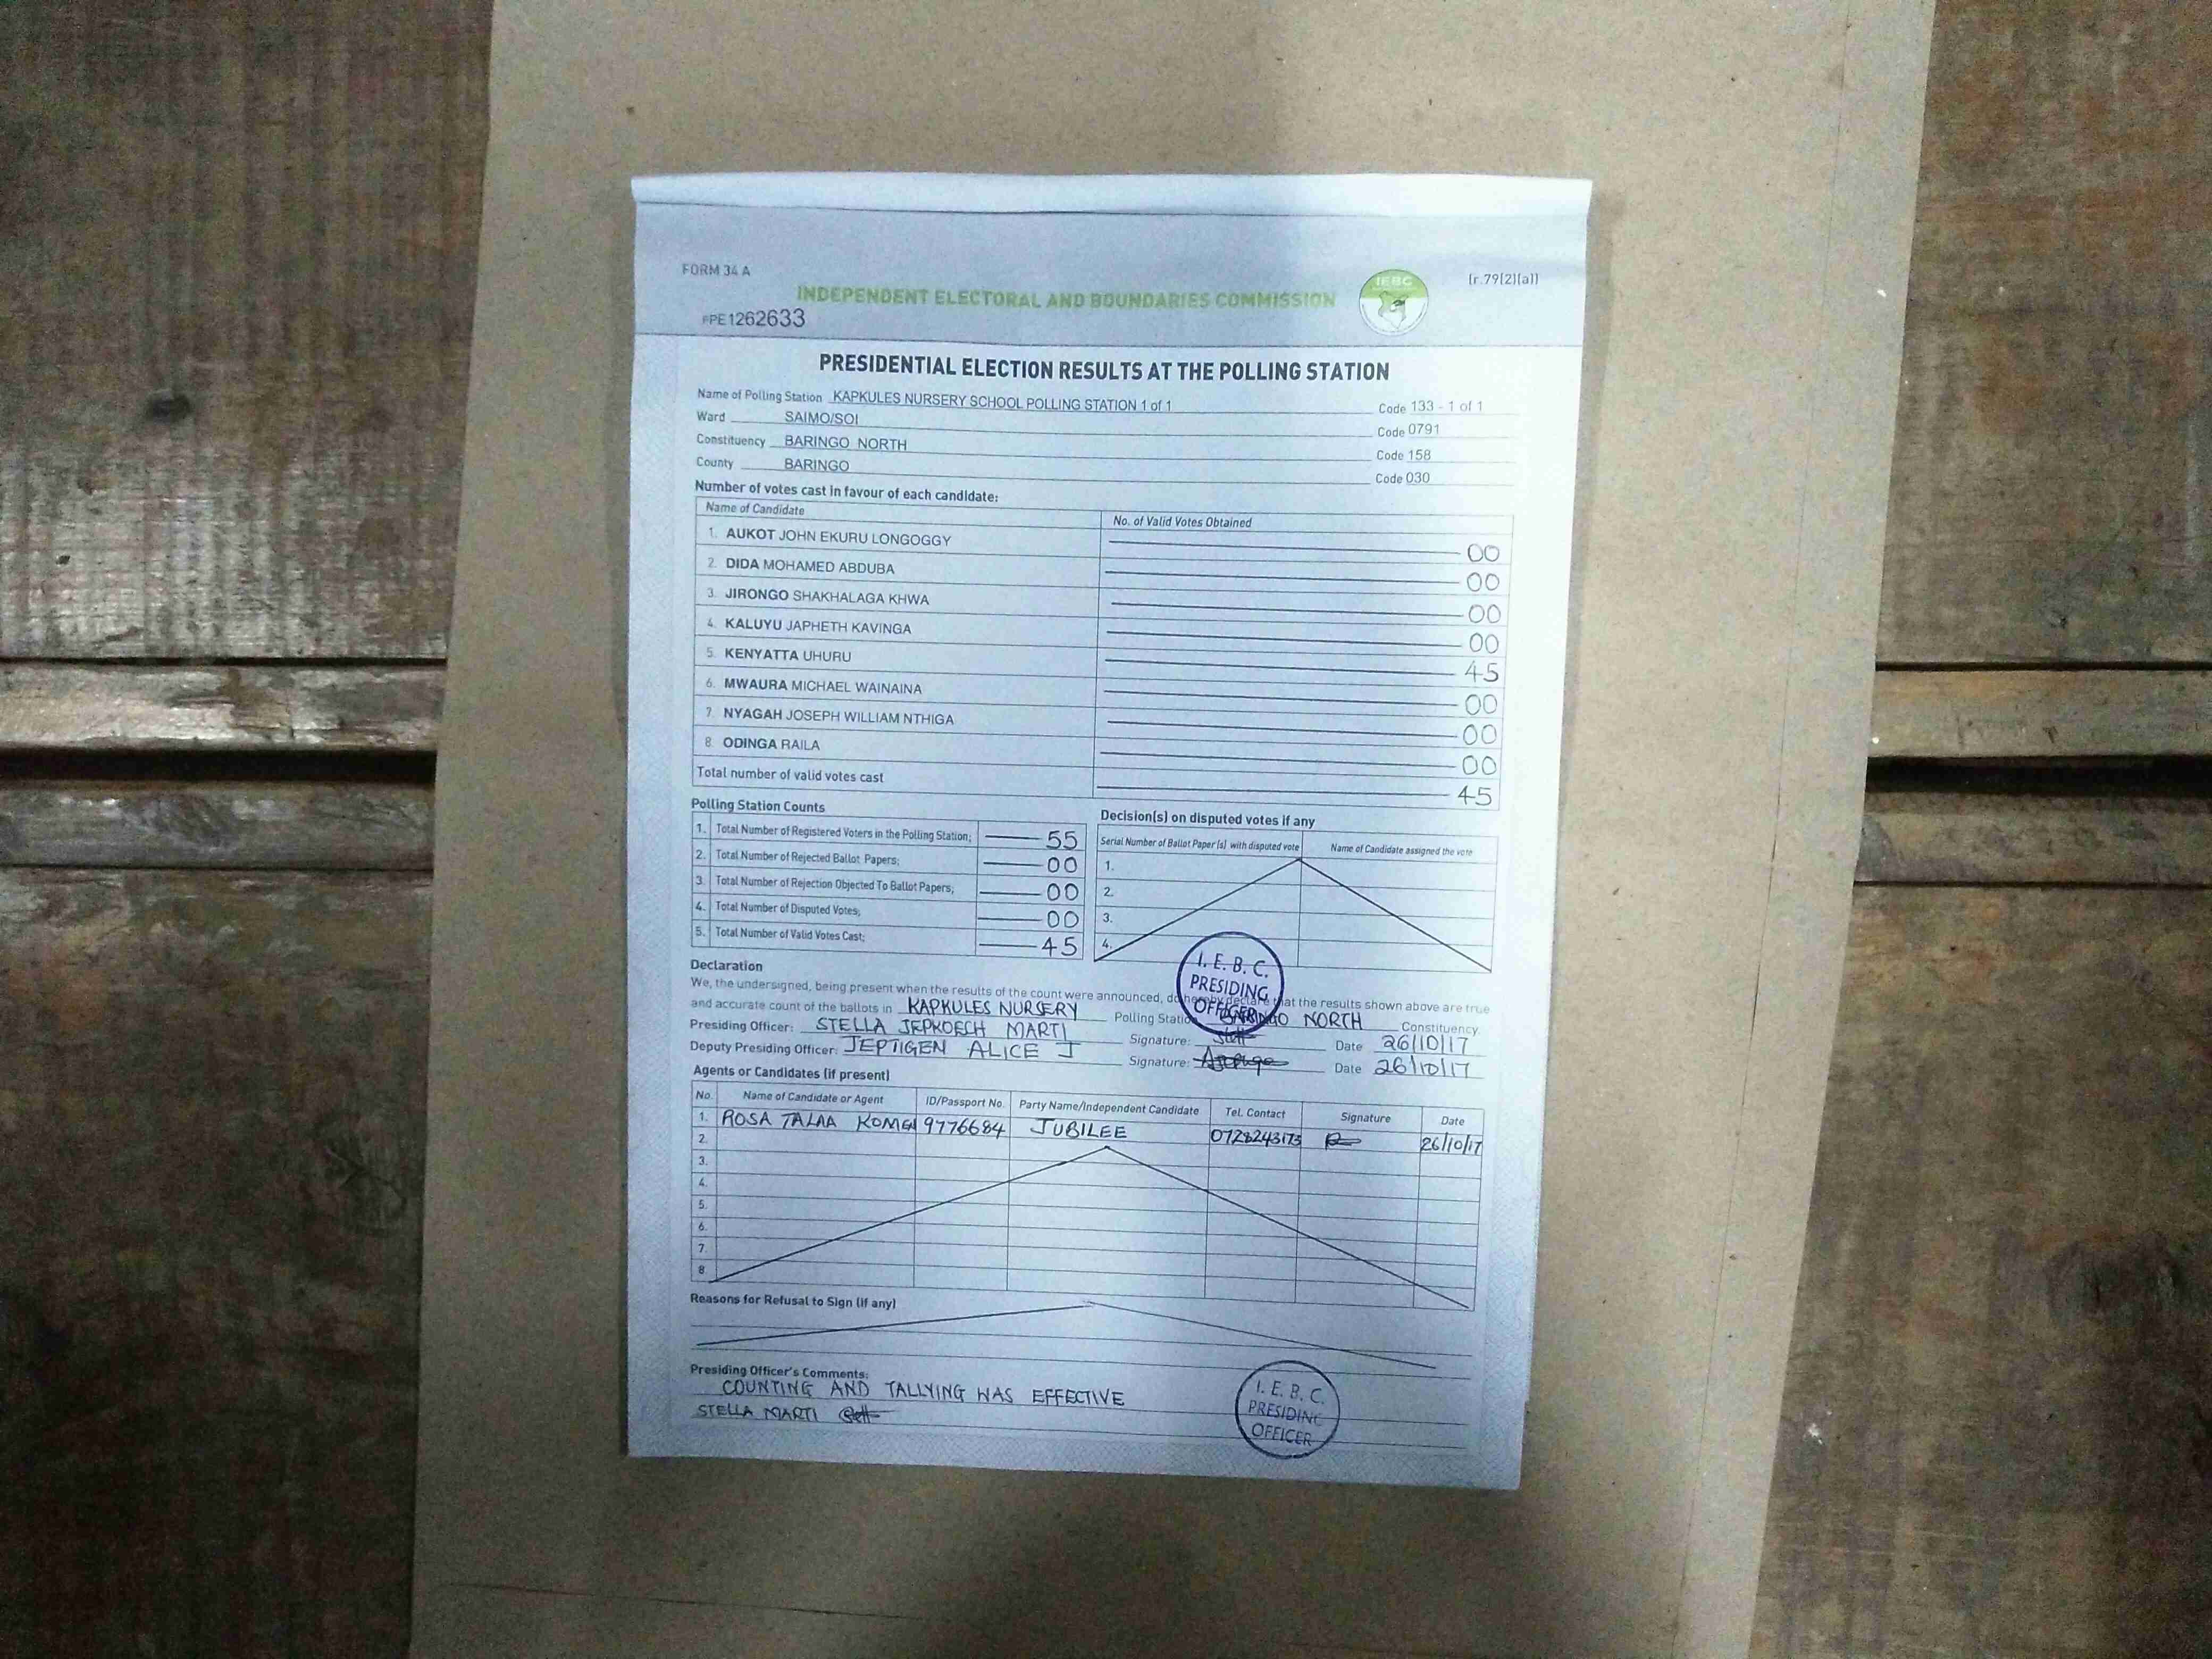 FORM 34 A
(r.79(2)(a))
INDEPENDENT ELECTORAL AND BOUNDARIES COMMISSION
IEBC
PPE1262633
PRESIDENTIAL ELECTION RESULTS AT THE POLLING STATION
Name of Polling Station KAPKULES NURSERY SCHOOL POLLING STATION 1 of 1 Code 133 - 1 of 1
Ward SAIMO/SOI Code 0791
Constituency BARINGO NORTH Code 158
County BARINGO Code 030
Number of votes cast in favour of each candidate:
Name of Candidate No. of Valid Votes Obtained
1. AUKOT JOHN EKURU LONGOGGY 00
2. DIDA MOHAMED ABDUBA 00
3. JIRONGO SHAKHALAGA KHWA 00
4. KALUYU JAPHETH KAVINGA 00
5. KENYATTA UHURU 45
6. MWAURA MICHAEL WAINAINA 00
7. NYAGAH JOSEPH WILLIAM NTHIGA 00
8. ODINGA RAILA 00
Total number of valid votes cast 45
Polling Station Counts
1. Total Number of Registered Voters in the Polling Station; 55
2. Total Number of Rejected Ballot Papers; 00
3. Total Number of Rejection Objected To Ballot Papers; 00
4. Total Number of Disputed Votes; 00
5. Total Number of Valid Votes Cast; 45
Decision(s) on disputed votes if any
Serial Number of Ballot Paper (s) with disputed vote Name of Candidate assigned the vote
1.
2.
3.
4.
I. E. B. C.
PRESIDING
OFFICER
Declaration
We, the undersigned, being present when the results of the count were announced, do hereby declare that the results shown above are true
and accurate count of the ballots in KAPKULES NURSERY Polling Station BARINGO NORTH Constituency
Presiding Officer: STELLA JEPKOECH MARTI Signature: Date 26/10/17
Deputy Presiding Officer: JEPTIGEN ALICE J Signature: Date 26/10/17
Agents or Candidates (if present)
No. Name of Candidate or Agent ID/Passport No. Party Name/Independent Candidate Tel. Contact Signature Date
1. ROSA TALAA 9776684 JUBILEE 0728243173 26/10/17
2.
3.
4.
5.
6.
7.
8.
Reasons for Refusal to Sign (if any)
Presiding Officer's Comments:
COUNTING AND TALLYING WAS EFFECTIVE
STELLA MARTI
I. E. B. C.
PRESIDING
OFFICER